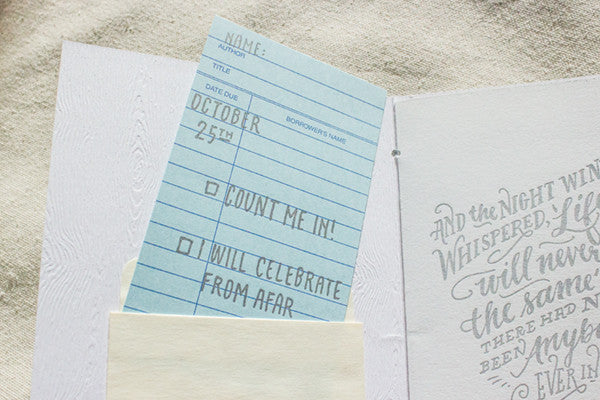 NAME:
AUTHOR
TITLE
DATE DUE
BORROWER'S NAME
OCTOBER
25TH
COUNT ME IN!
I WILL CELEBRATE
FROM AFAR
AND the NIGHT WIN
WHISPERED, Life
will never
the same
THERE HAD N
BEEN Anybo
EVER IN